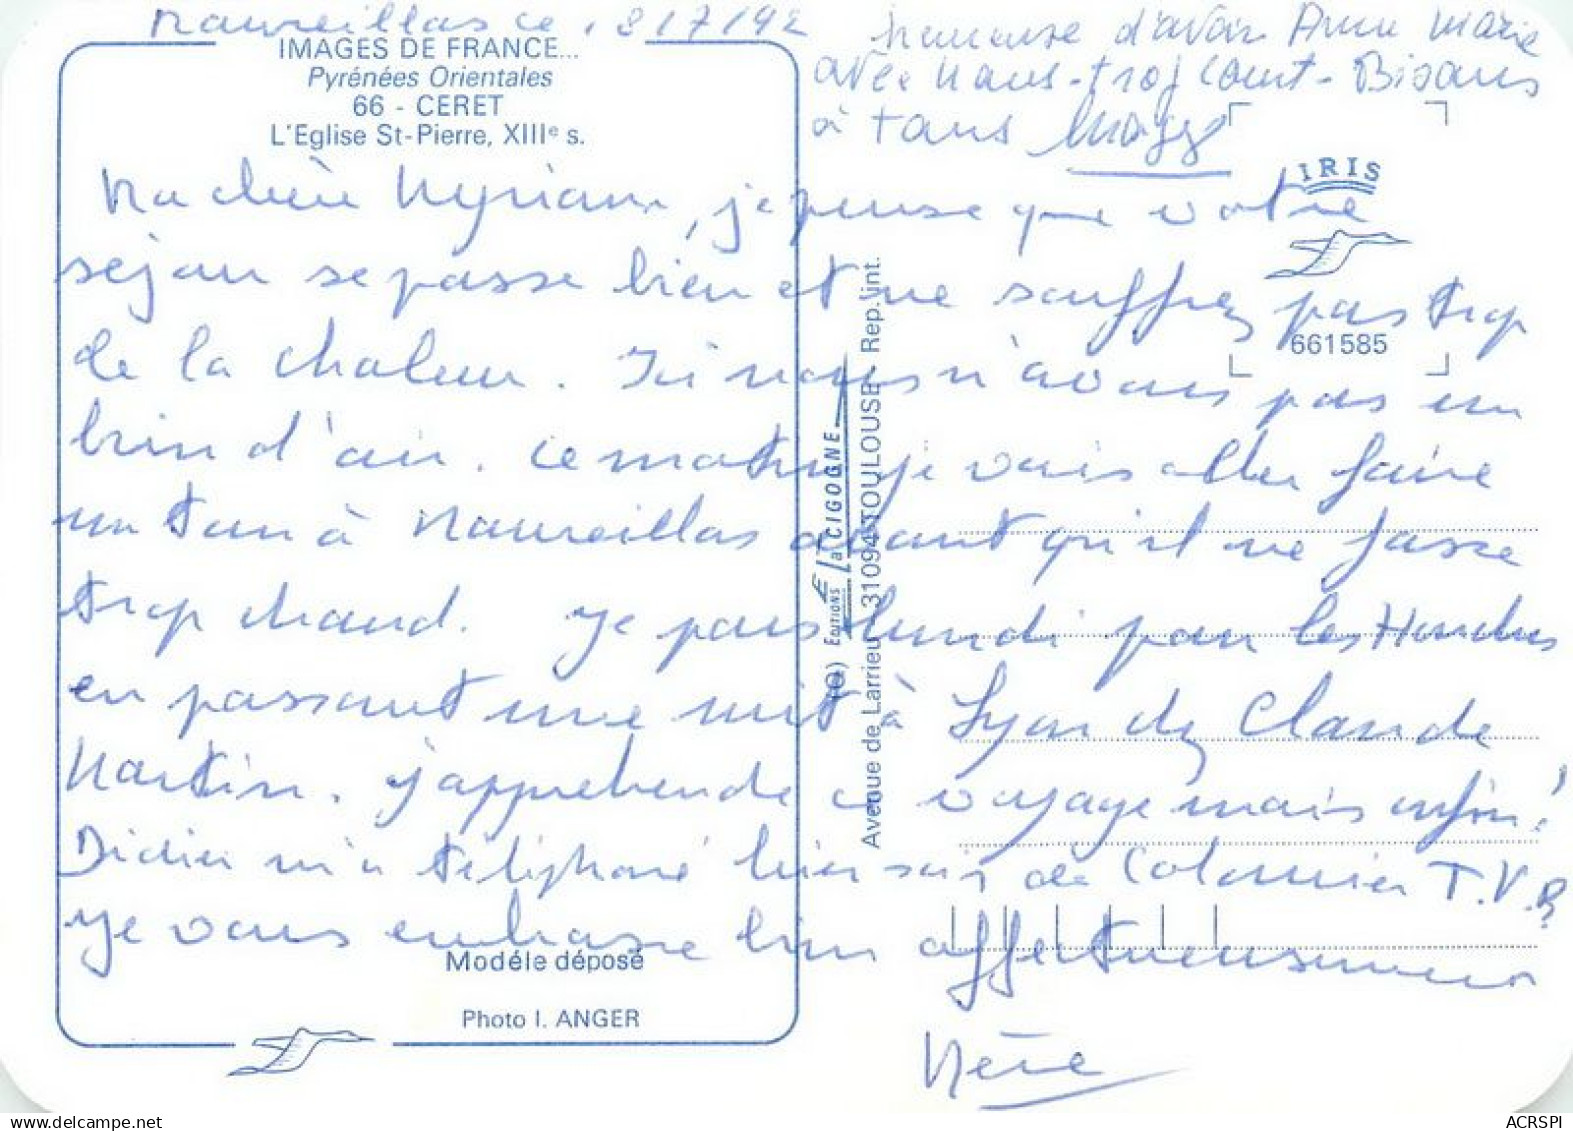 Maureillas ce 18/7/92
IMAGES DE FRANCE...
Pyrénées Orientales
66 - CERET
L'Eglise St-Pierre, XIIIe s.
heureuse d'avoir Anne Marie
avec nous - trop court - Bisous
à tous Maggy
IRIS
661585
Ma chère Myriam, je pense que votre
séjour se passe bien et ne souffrez pas trop
de la chaleur. Ici nous n'avons pas un
brin d'air. Ce matin je vais aller faire
un tour à Maureillas avant qu'il ne fasse
trop chaud. Je pars lundi pour les
en passant une nuit à Lyon chez Claude
Martin. J'appréhende ce voyage mais enfin!
Didier m'a téléphoné hier soir de Colomier T.V.B
Je vous embrasse bien affectueusement
Mère
EDITIONS La CIGOGNE
Avenue de Larrieu 31094 TOULOUSE Rep. int.
Modéle déposé
Photo I. ANGER
ACRSPI